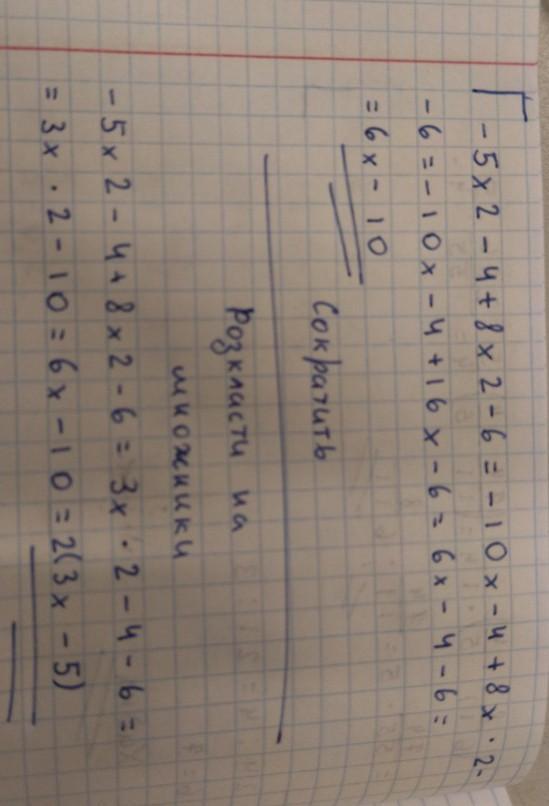 -5x2-4+8x2-6=-10x-4+8x·2-
-6=-10x-4+16x-6=6x-4-6=
=6x-10
Сократить
Розкласти на
множники
-5x2-4+8x2-6=3x·2-4-6=
=3x·2-10=6x-10=2(3x-5)